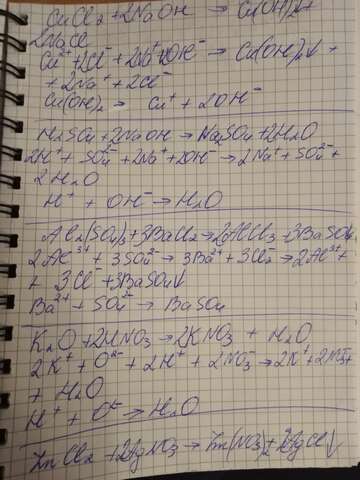 CuCl₂ + 2NaOH → Cu(OH)₂↓ +
2NaCl
Cu²⁺ + 2Cl⁻ + 2Na⁺ + 2OH⁻ → Cu(OH)₂↓ +
+ 2Na⁺ + 2Cl⁻
Cu(OH)₂ → Cu⁺ + 2OH⁻
H₂SO₄ + 2NaOH → Na₂SO₄ + 2H₂O
2H⁺ + SO₄²⁻ + 2Na⁺ + 2OH⁻ → 2Na⁺ + SO₄²⁻ +
2H₂O
H⁺ + OH⁻ → H₂O
Al₂(SO₄)₃ + 3BaCl₂ → 2AlCl₃ + 3BaSO₄
2Al³⁺ + 3SO₄²⁻ → 3Ba²⁺ + 3Cl₂⁻ → 2Al³⁺ +
+ 3Cl⁻ + 3BaSO₄↓
Ba²⁺ + SO₄²⁻ → BaSO₄
K₂O + 2HNO₃ → 2KNO₃ + H₂O
2K⁺ + O²⁻ + 2H⁺ + 2NO₃⁻ → 2K⁺ + 2NO₃⁻ +
+ H₂O
H⁺ + O²⁻ → H₂O
ZnCl₂ + 2AgNO₃ → Zn(NO₃)₂ + 2AgCl↓